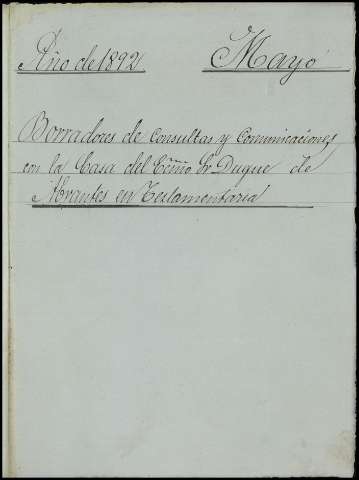 Año de 1892 Mayo
Borradores de Consultas y Comunicaciones
con la Casa del Exmo Sr Duque de
Abrantes en Testamentaria